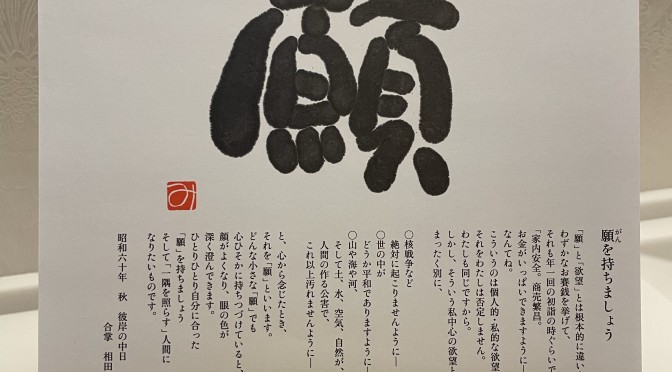 願
み
がん
願を持ちましょう
「願」と「欲望」とは根本的に違い
わずかなお賽銭を挙げて、
それも年一回の初詣の時ぐらいで
「家内安全。商売繁昌。
お金がいっぱいできますように―
なんてね。
こういうのは個人的・私的な欲望
それをわたしは否定しません。
わたしも同じですから。
しかし、そういう私中心の欲望と
まったく別に、
○核戦争など
絶対に起こりませんように―
○世の中が
どうか平和でありますように―
○山や海や河、
そして土、水、空気、自然が、
人間の作る公害で、
これ以上汚れませんように―
と、心から念じたとき、
それを「願」といいます。
どんな小さな「願」でも
心ひそかに持ちつづけていると、
顔がよくなり、眼の色が
深く澄んできます。
ひとりひとり自分に合った
「願」を持ちましょう
そして「一隅を照らす」人間に
なりたいものです。
昭和六十年 秋 彼岸の中日
合掌 相田